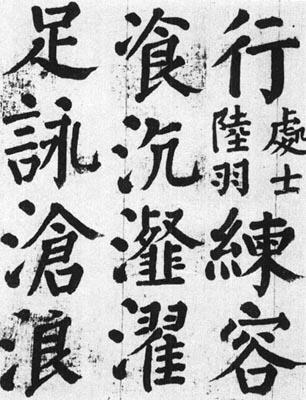 行處士陸羽練容
飡沆瀣濯
足詠滄浪